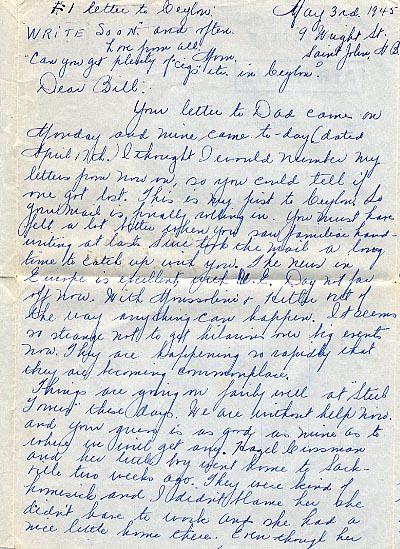 #1 letter to Ceylon.
May 3rd. 1945
WRITE SOON and often.
9 Wright St.
Love from all
Saint John, N.B.
Mom.
"Can you get plenty of "cigs" etc. in Ceylon?
Dear Bill:
Your letter to Dad came on
Monday and mine came to-day (dated
April 17th.) I thought I would number my
letters from now on, so you could tell if
one got lost. This is my first to Ceylon. So
your mail is finally rolling in. You must have
felt a lot better when you saw familiar hand-
writing at last. Sure took the mail a long
time to catch up with you. The news in
Europe is excellent, V.E. Day not far
off now. With Mussolini & Hitler out of
the way anything can happen. It seems
so strange not to get hilarious over big events
now. They are happening so rapidly that
they are becoming commonplace.
Things are going on fairly well at "Steel
Towers" these days. We are without help now.
and your guess is as good, as mine as to
where we will get any. Hazel
and her little boy went home to Sack-
ville two weeks ago. They were kind of
homesick and I didn't blame her she
didn't have to work and she had a
nice little home there. Even though her